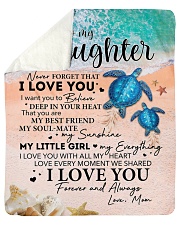 my
Daughter
Never FORGET THAT
I LOVE YOU
I want you to Believe
DEEP IN YOUR HEART
That you are
MY BEST FRIEND
MY SOUL-MATE
my Sunshine
MY LITTLE GIRL my Everything
I LOVE YOU WITH ALL MY HEART
LOVE EVERY MOMENT WE SHARED
I LOVE YOU
Forever and Always
Love, Mom